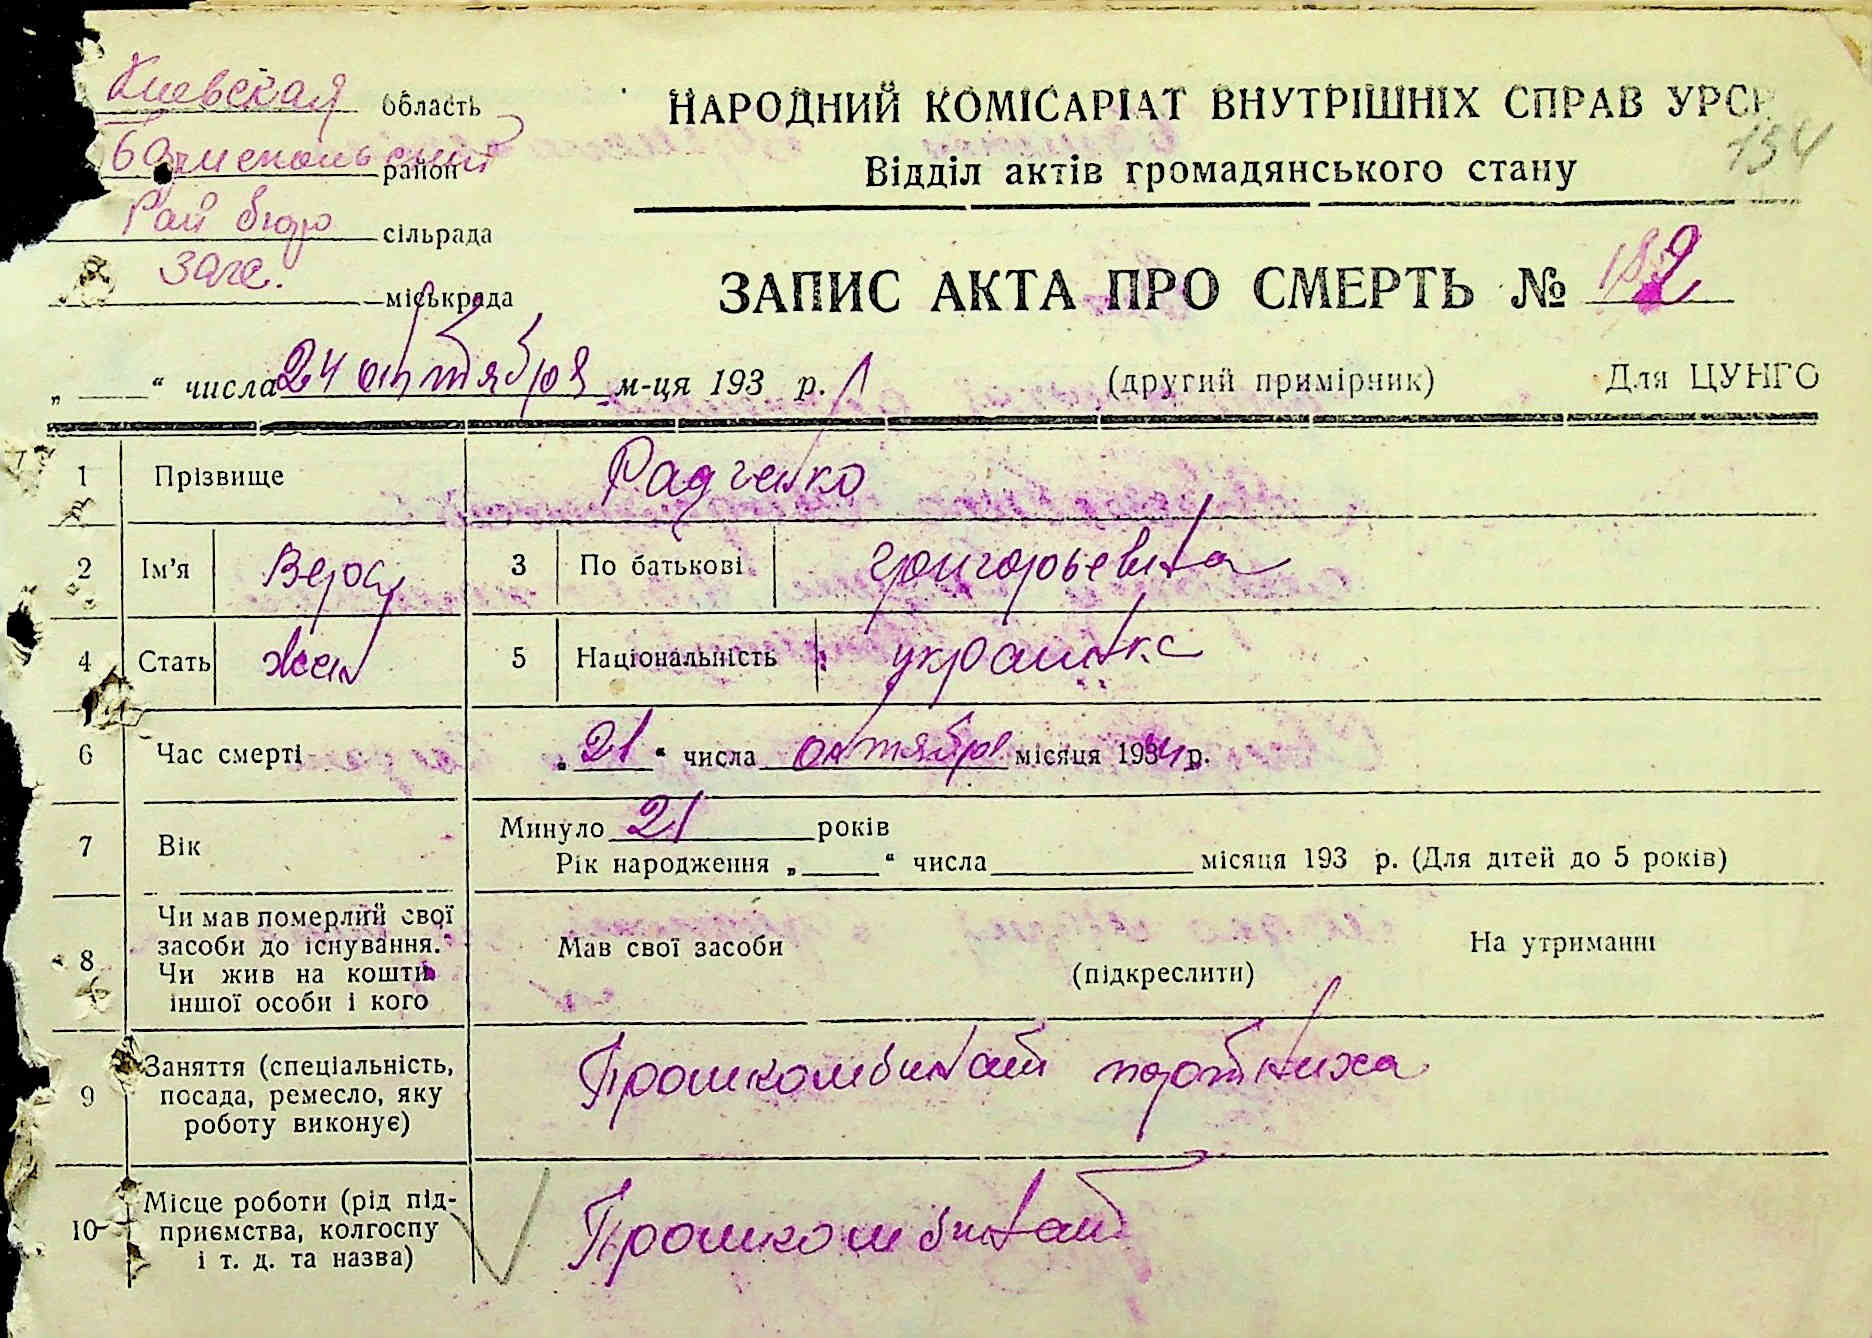 Киевская область
Бориспольский район
Рай бюро сільрада
Загс. міськрада
НАРОДНИЙ КОМІСАРІАТ ВНУТРІШНІХ СПРАВ УРСР
154
Відділ актів громадянського стану
ЗАПИС АКТА ПРО СМЕРТЬ № 182
„ “ числа 24 октября м-ця 193 р.
(другий примірник) Для ЦУНГО
1 Прізвище Радченко
2 Ім'я Вера 3 По батькові Григорьевна
4 Стать жен 5 Національність украинка
6 Час смерті „21“ числа октября місяця 1934 р.
7 Вік Минуло 21 років
Рік народження „ “ числа місяця 193 р. (Для дітей до 5 років)
8 Чи мав померлий свої засоби до існування. Чи жив на кошти іншої особи і кого
Мав свої засоби (підкреслити) На утриманні
9 Заняття (спеціальність, посада, ремесло, яку роботу виконує)
Промкомбинат портниха
10 Місце роботи (рід під-
приємства, колгоспу
і т. д. та назва)
Промкомбинат